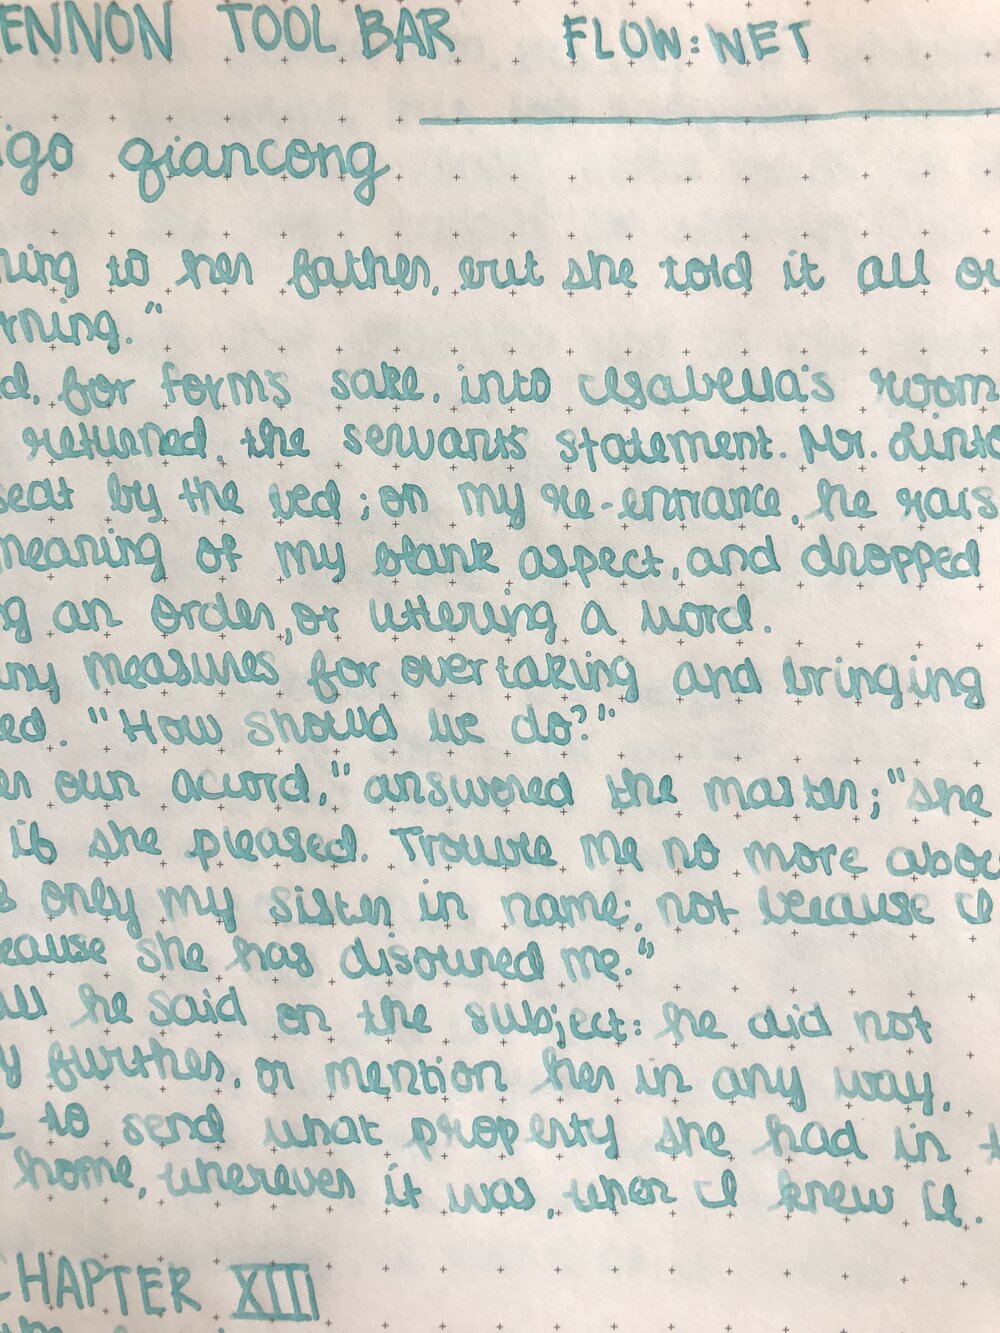 ENNON TOOL BAR FLOW: WET
igo qiancong
ning to her father, but she told it all ou
rning."
d, for form's sake, into Isabella's room
returned, the servant's statement. Mr. Linto
seat by the bed; on my re-entrance, he rais
meaning of my blank aspect, and dropped
g an order, or uttering a word.
any measures for overtaking and bringing
ed. "How should we do?"
er own accord," answered the master; "she
if she pleased. Trouble me no more abou
s only my sister in name; not because I
ecause she has disowned me."
all he said on the subject: he did not
y further, or mention her in any way,
e to send what property she had in t
home, wherever it was, when I knew it.
CHAPTER XIII